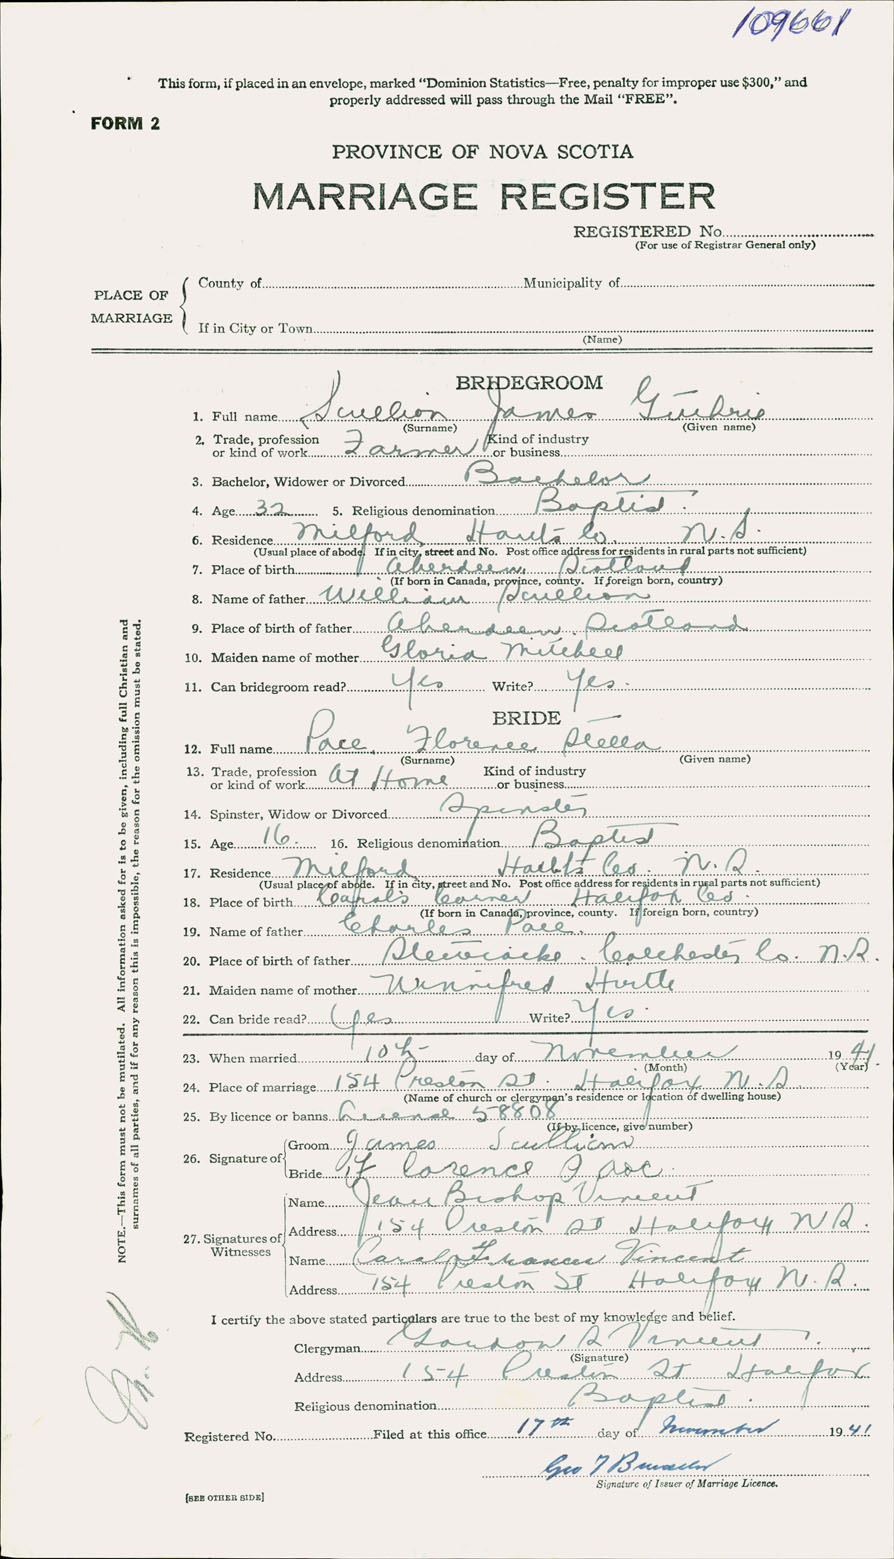 109661
This form, if placed in an envelope, marked “Dominion Statistics—Free, penalty for improper use $300,” and
properly addressed will pass through the Mail “FREE”.
FORM 2
PROVINCE OF NOVA SCOTIA
MARRIAGE REGISTER
REGISTERED No.
(For use of Registrar General only)
PLACE OF MARRIAGE
County of Municipality of
If in City or Town
(Name)
BRIDEGROOM
1. Full name Scullion James Guthrie
(Surname) (Given name)
2. Trade, profession or kind of work Farmer Kind of industry or business
3. Bachelor, Widower or Divorced Bachelor
4. Age 32 5. Religious denomination Baptist
6. Residence Milford Hants Co. N.S.
(Usual place of abode. If in city, street and No. Post office address for residents in rural parts not sufficient)
7. Place of birth Aberdeen, Scotland
(If born in Canada, province, county. If foreign born, country)
8. Name of father William Scullion
9. Place of birth of father Aberdeen Scotland
10. Maiden name of mother Gloria Mitchell
11. Can bridegroom read? Yes Write? Yes.
BRIDE
12. Full name Pace, Florence Stella
(Surname) (Given name)
13. Trade, profession or kind of work At Home Kind of industry or business
14. Spinster, Widow or Divorced Spinster
15. Age 16. 16. Religious denomination Baptist
17. Residence Milford Hants Co. N.S.
(Usual place of abode. If in city, street and No. Post office address for residents in rural parts not sufficient)
18. Place of birth Corner Halifax Co.
(If born in Canada, province, county. If foreign born, country)
19. Name of father Charles Pace.
20. Place of birth of father Stewiacke. Colchester Co. N.S.
21. Maiden name of mother Winnifred Hurtle
22. Can bride read? Yes Write? Yes.
23. When married 10th day of November 1941
(Month) (Year)
24. Place of marriage 154 Preston St. Halifax N.S.
(Name of church or clergyman’s residence or location of dwelling house)
25. By licence or banns License 58808
(If by licence, give number)
26. Signature of Groom James Scullion
Bride Florence Pace.
27. Signatures of Witnesses
Name Jean Bishop Vincent
Address 154 Preston St Halifax N.S.
Name Carol Frances Vincent
Address 154 Preston St Halifax N.S.
I certify the above stated particulars are true to the best of my knowledge and belief.
Clergyman Gordon Vincent
(Signature)
Address 154 Preston St Halifax
Religious denomination Baptist.
Registered No. Filed at this office 17th day of November 1941
Geo
Signature of Issuer of Marriage Licence.
[SEE OTHER SIDE]
NOTE.—This form must not be mutilated. All information asked for is to be given, including full Christian and
surnames of all parties, and if for any reason this is impossible, the reason for the omission must be stated.